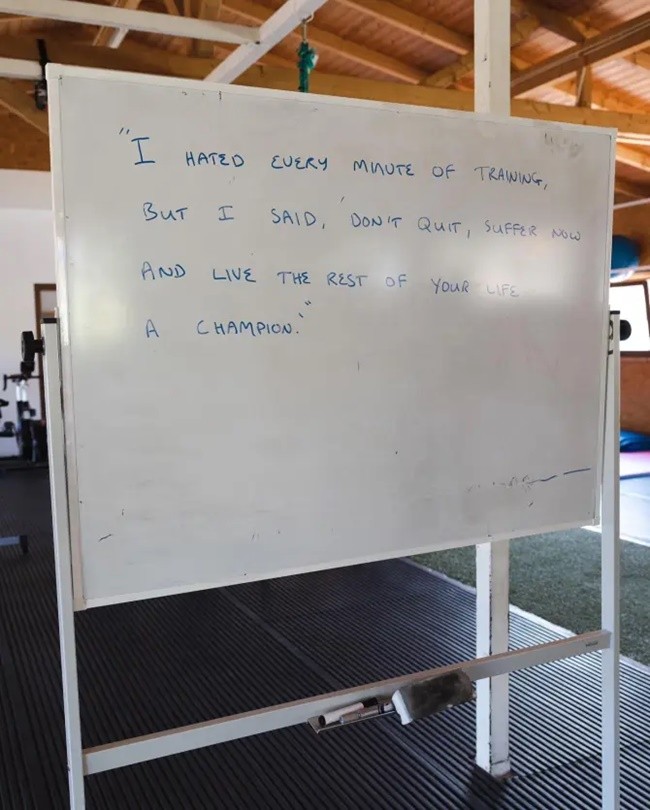 "I HATED EVERY MINUTE OF TRAINING,
BUT I SAID, 'DON'T QUIT, SUFFER NOW
AND LIVE THE REST OF YOUR LIFE
A CHAMPION.'"